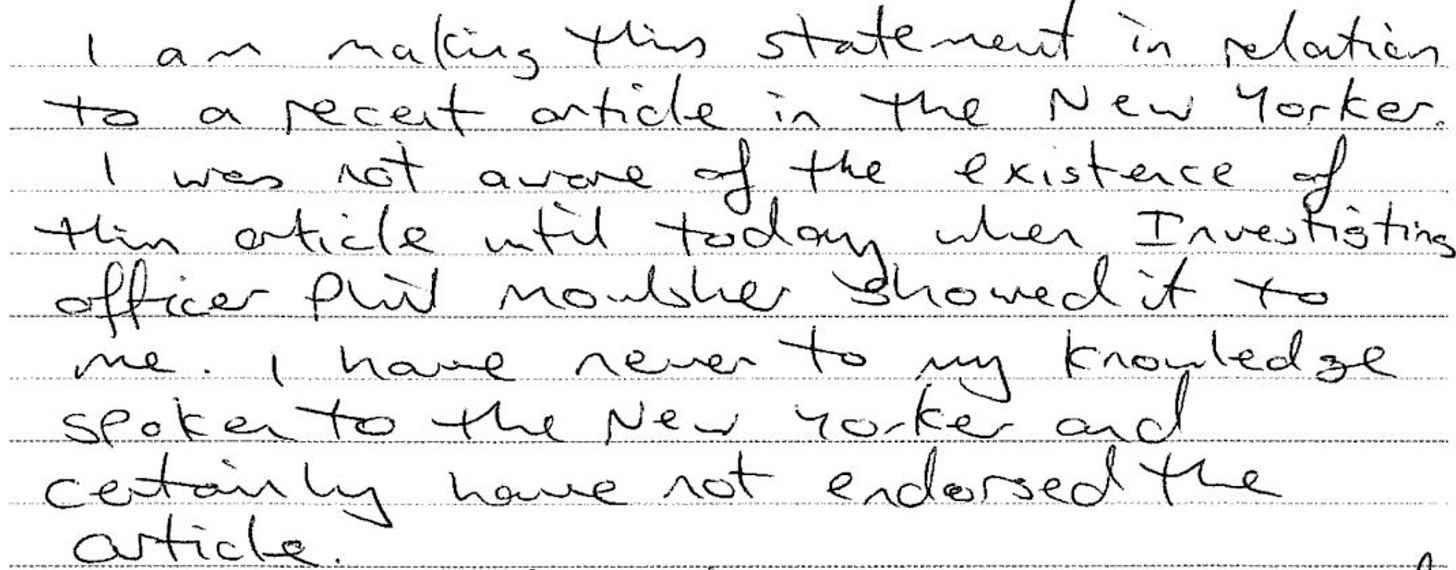 I am making this statement in relation
to a recent article in the New Yorker.
I was not aware of the existence of
this article until today when Investigating
officer Phil Moulsher showed it to
me. I have never to my knowledge
spoken to the New Yorker and
certainly have not endorsed the
article.